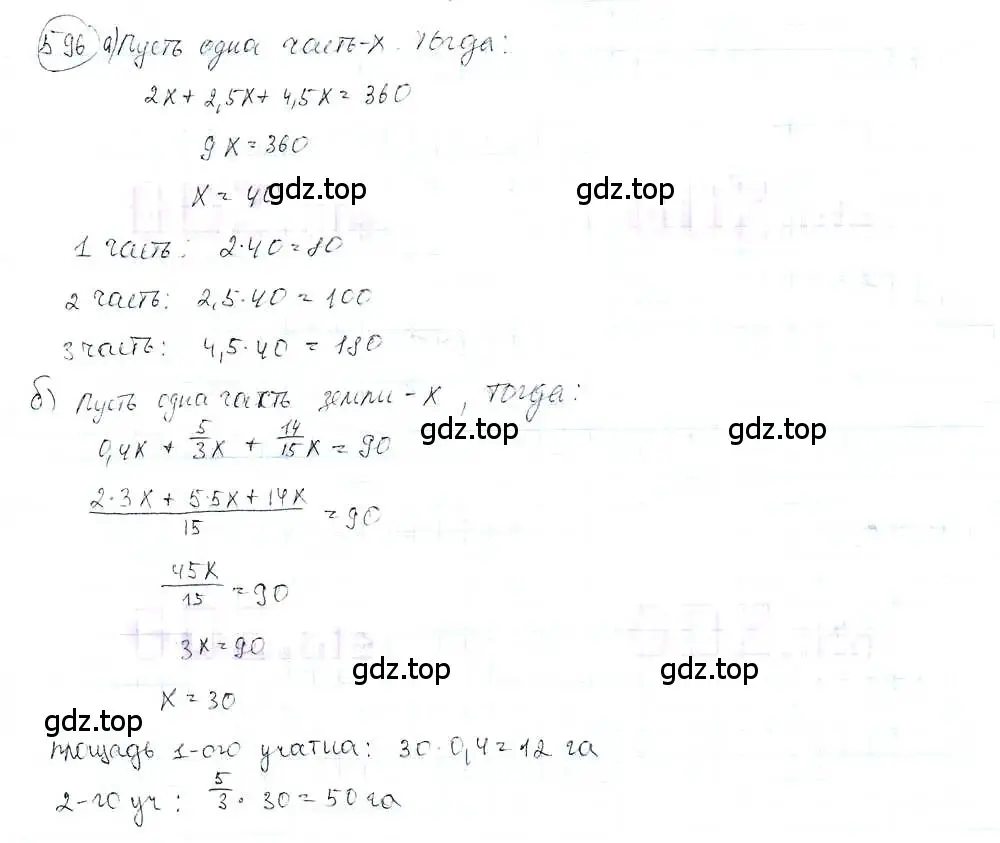 596 а) Пусть одна часть - х. Тогда:
2х + 2,5х + 4,5х = 360
9х = 360
х = 40
gdz.top gdz.top
1 часть: 2·40=80
2 часть: 2,5·40 = 100
3 часть: 4,5·40 = 180
б) Пусть одна часть земли - х, тогда:
0,4х + 5/3х + 14/15х = 90
gdz.top gdz.top
2·3х + 5·5х + 14х / 15 = 90
45х/15 = 90
3х = 90
gdz.top gdz.top
х = 30
gdz.top
площадь 1-ого учатка: 30·0,4=12 га
2-го уч: 5/3·30=50га